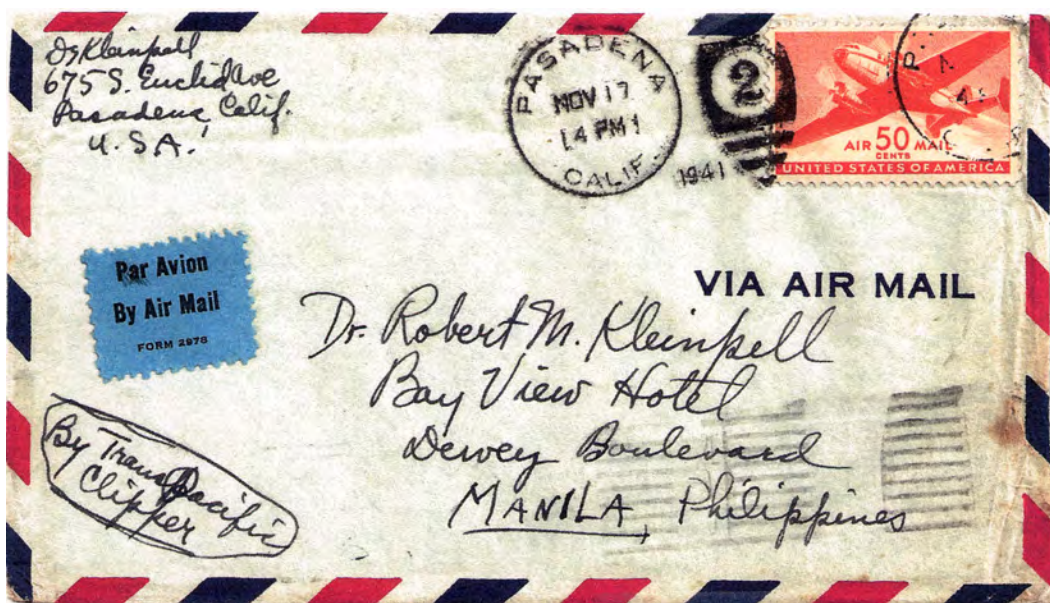 Dr Kleinpell
675 S. Euclid Ave
Pasadena, Calif.
U.S.A.
PASADENA
NOV 17
4 PM
CALIF.
1941
2
AIR 50 MAIL
CENTS
UNITED STATES OF AMERICA
Par Avion
By Air Mail
FORM 2978
VIA AIR MAIL
Dr. Robert M. Kleinpell
Bay View Hotel
Dewey Boulevard
MANILA, Philippines
By TransPacific
Clipper